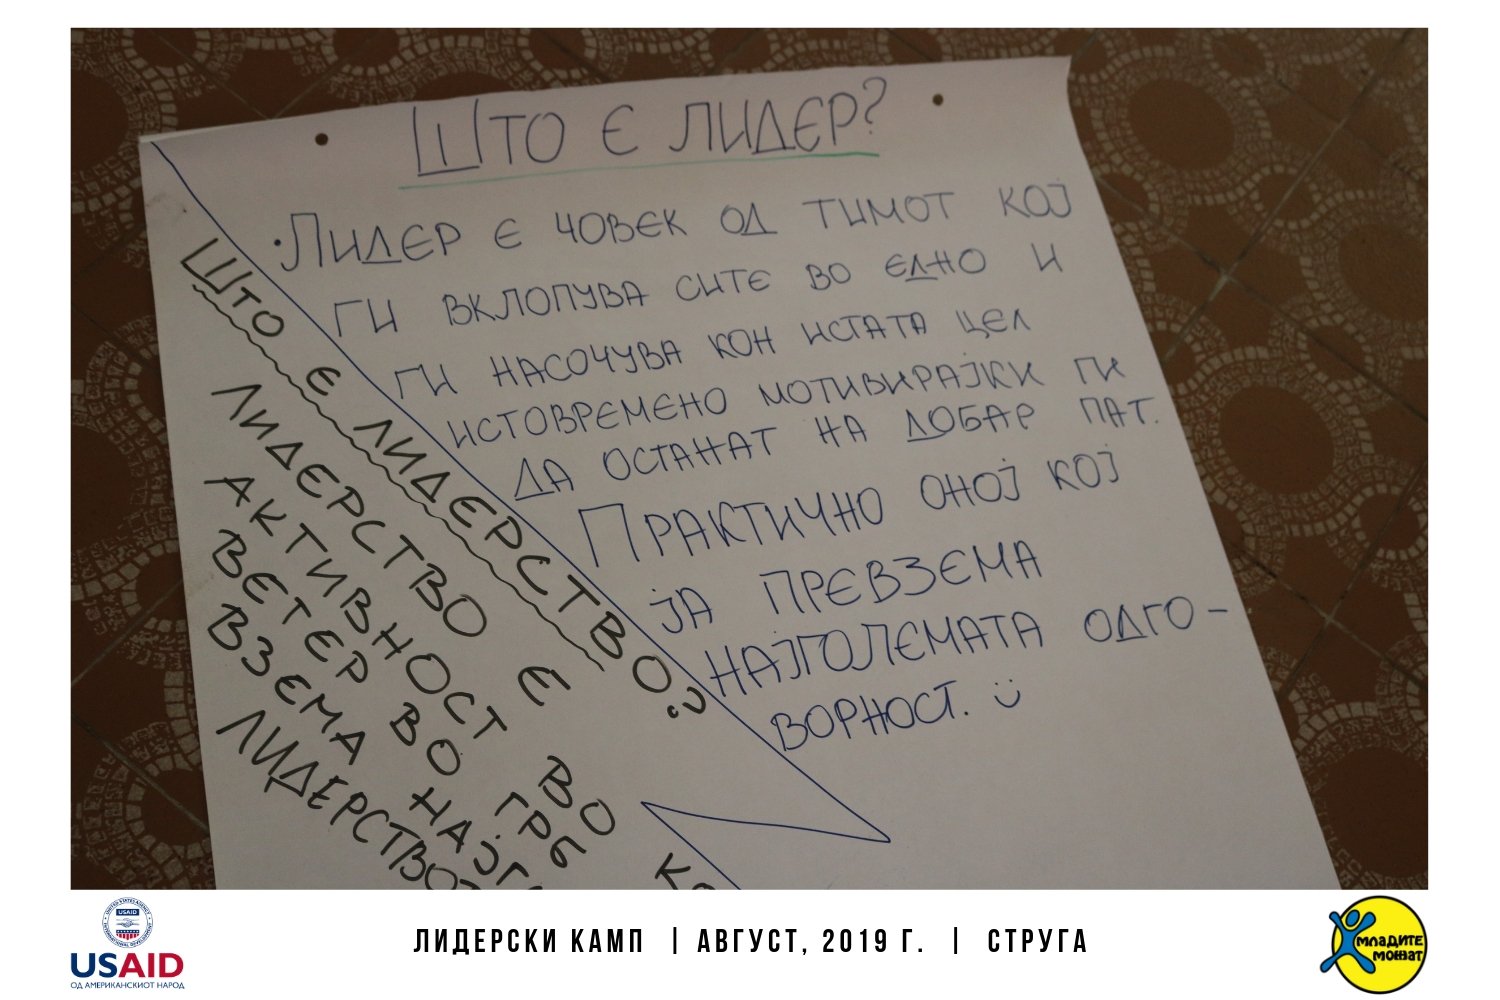 ШТО Е ЛИДЕР?
· ЛИДЕР Е ЧОВЕК ОД ТИМОТ КОЈ
ГИ ВКЛОПУВА СИТЕ ВО ЕДНО И
ГИ НАСОЧУВА КОН ИСТАТА ЦЕЛ
ИСТОВРЕМЕНО МОТИВИРАЈЌИ ГИ
ДА ОСТАНАТ НА ДОБАР ПАТ.
ПРАКТИЧНО ОНОЈ КОЈ
ЈА ПРЕВЗЕМА
НАЈГОЛЕМАТА ОДГО-
ВОРНОСТ. :)
ШТО Е ЛИДЕРСТВО?
ЛИДЕРСТВО Е
АКТИВНОСТ ВО
ВЕТЕР ВО ГРБ
ВЗЕМА
ЛИДЕРСТВО
USAID
ОД АМЕРИКАНСКИОТ НАРОД
ЛИДЕРСКИ КАМП | АВГУСТ, 2019 Г. | СТРУГА
МЛАДИТЕ
МОЖАТ